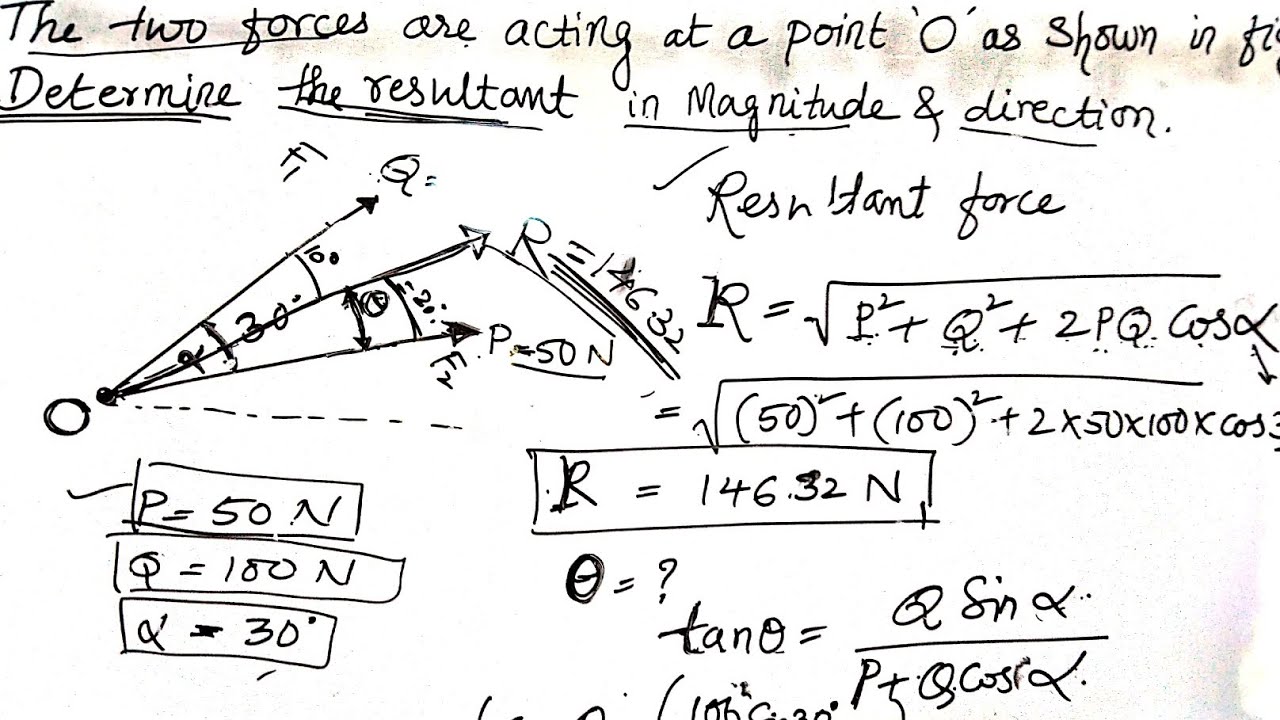 The two forces are acting at a point 'O' as shown in fig
Determine the resultant in Magnitude & direction.
F₁
Q =
R = 146.32
10°
30°
α
θ
= 20°
P = 50 N
F₂
O
Resultant force
R = √P² + Q² + 2PQ Cosα
= √(50)² + (100)² + 2×50×100×cos3
R = 146.32 N
P = 50 N
Q = 100 N
α = 30°
θ = ?
tanθ = Q Sin α / P + Q Cos α